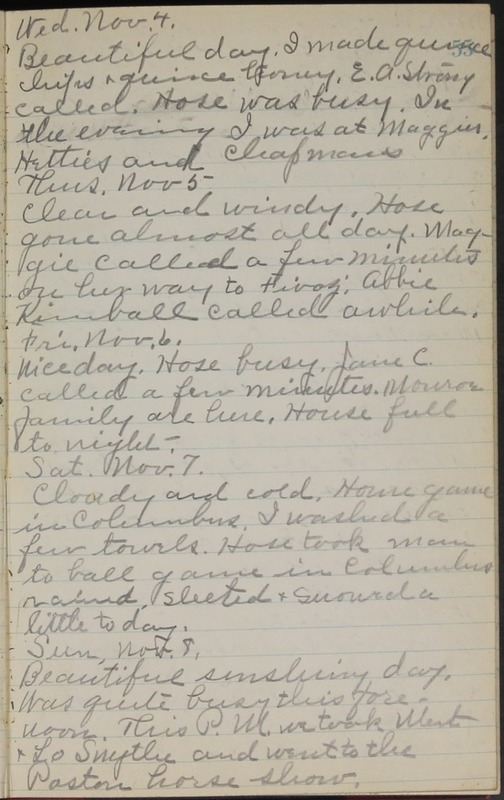 Wed. Nov. 4.
Beautiful day. I made quince
chips + quince honey. E. A. Strong
called. Hose was busy. In
the evening I was at Maggies,
Hetties and Chapmans
Thus. Nov 5
Clear and windy. Hose
gone almost all day. Mag-
gie called a few minutes
on her way to Abbie
Kimball called awhile.
Fri. Nov. 6.
Nice day. Hose busy. Jane C.
called a few minutes. Monroe
family are here. House full
to night.
Sat. Nov. 7.
Cloudy and cold. Home game
in Columbus. I washed a
few towels. Hose took man
to ball game in Columbus
rained, sleeted + snowed a
little today.
Sun, Nov. 8.
Beautiful sunshiny day.
Was quite busy this fore-
noon. This P. M. we took Mert
+ Lo Smythe and went to the
Paston horse show.